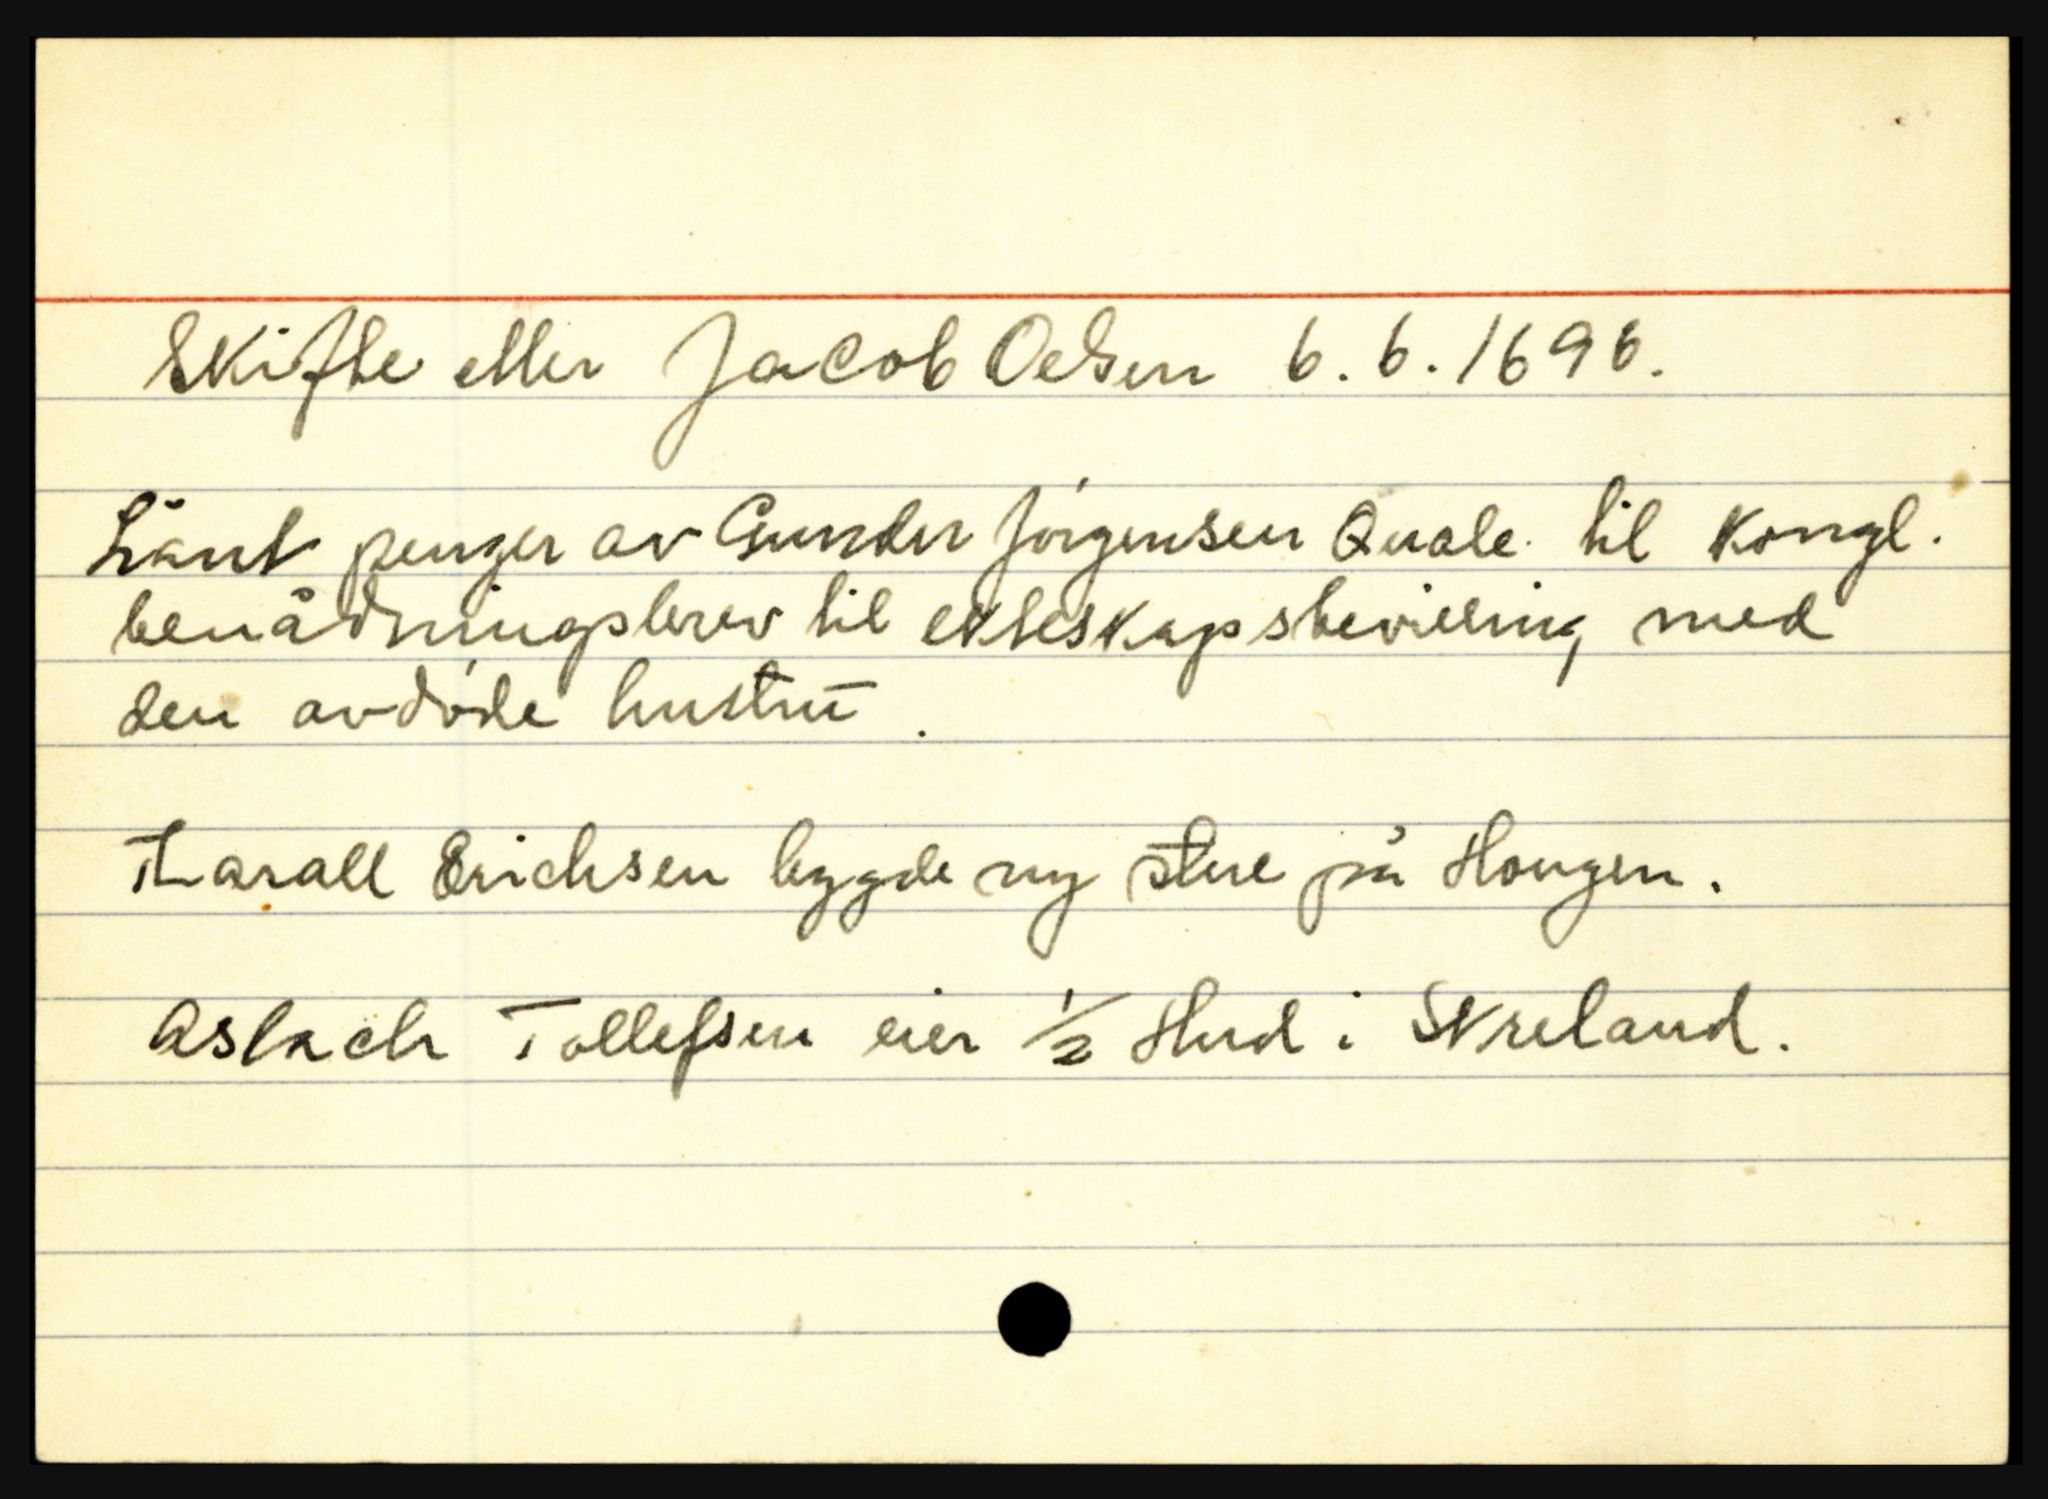 Skifte etter Jacob Oelsen 6.6.1696.
Lånt penger av Gunder Jörgensen Quale til Kongl.
benådningsbrev til ekteskapsbevilling med
den avdøde hustru.
Tharall Erichsen bygde ny stue på Hougen.
Aslach Tollefsen eier 1/2 Hud i Skreland.